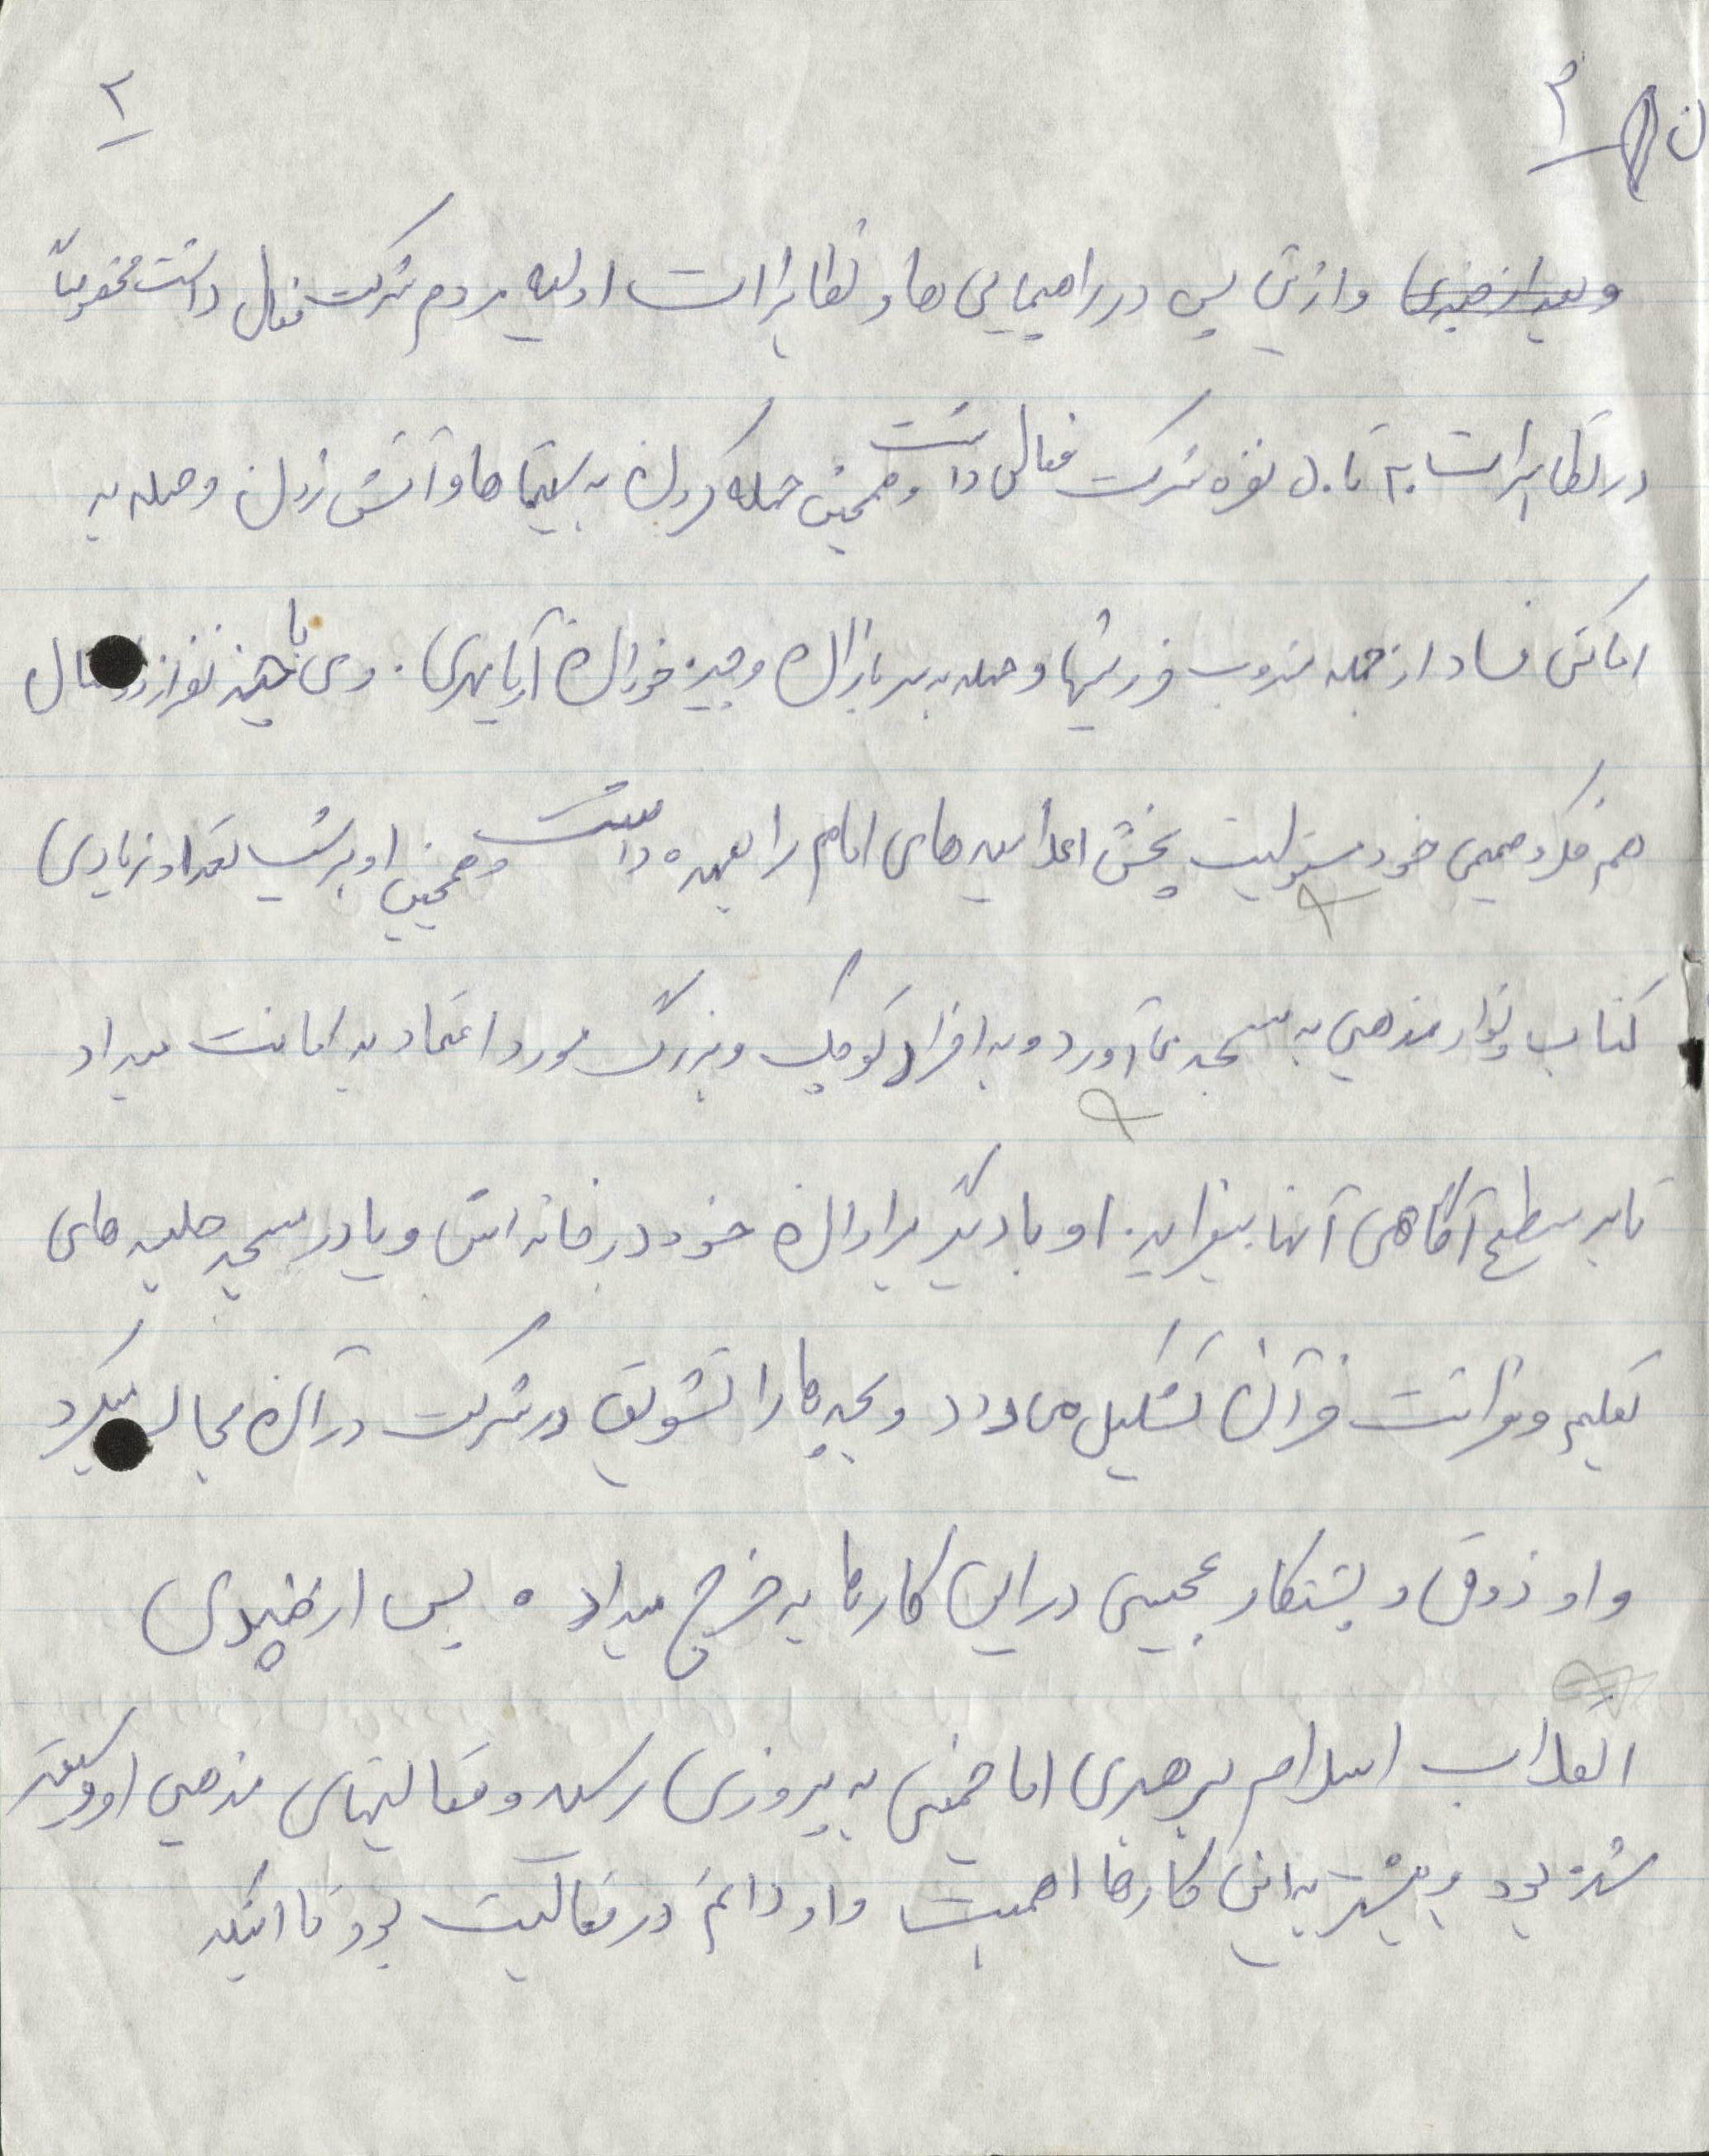 ۲
۲
و بعد از چندی و از آن پس در راهپیمایی ها و تظاهرات اولیه مردم شرکت فعال داشت مخصوصاً
در تظاهرات ۴۰ تا ۵۰ نفره شرکت فعالی داشت و همچنین حمله کردن به سینما ها و آتش زدن و حمله به
اماکن فساد از جمله مشروب فروشیها و حمله به سربازان و جیره خواران آریامهری. وی با چند نفر از دوستان
هم فکر و صمیمی خود مسئولیت پخش اعلامیه های امام را بعهده داشت و همچنین او هر شب تعداد زیادی
کتاب و نوار مذهبی به مسجد می آورد و به افراد کوچک و بزرگ مورد اعتماد به امانت میداد
تا بر سطح آگاهی آنها بیفزاید. او با دیگر برادران خود در خانه اش و یا در مسجد جلسه های
تعلیم و قرائت قرآن تشکیل می داد و بچه ها را تشویق در شرکت در آن مجالس میکرد
و او ذوق و پشتکار عجیبی در این کارها به خرج میداد. پس از چندی
انقلاب اسلام برهبری امام خمینی به پیروزی رسید و فعالیتهای مذهبی او وسیعتر
شده بود و بیشتر به این کارها اهمیت و او دائم در فعالیت بود تا اینکه